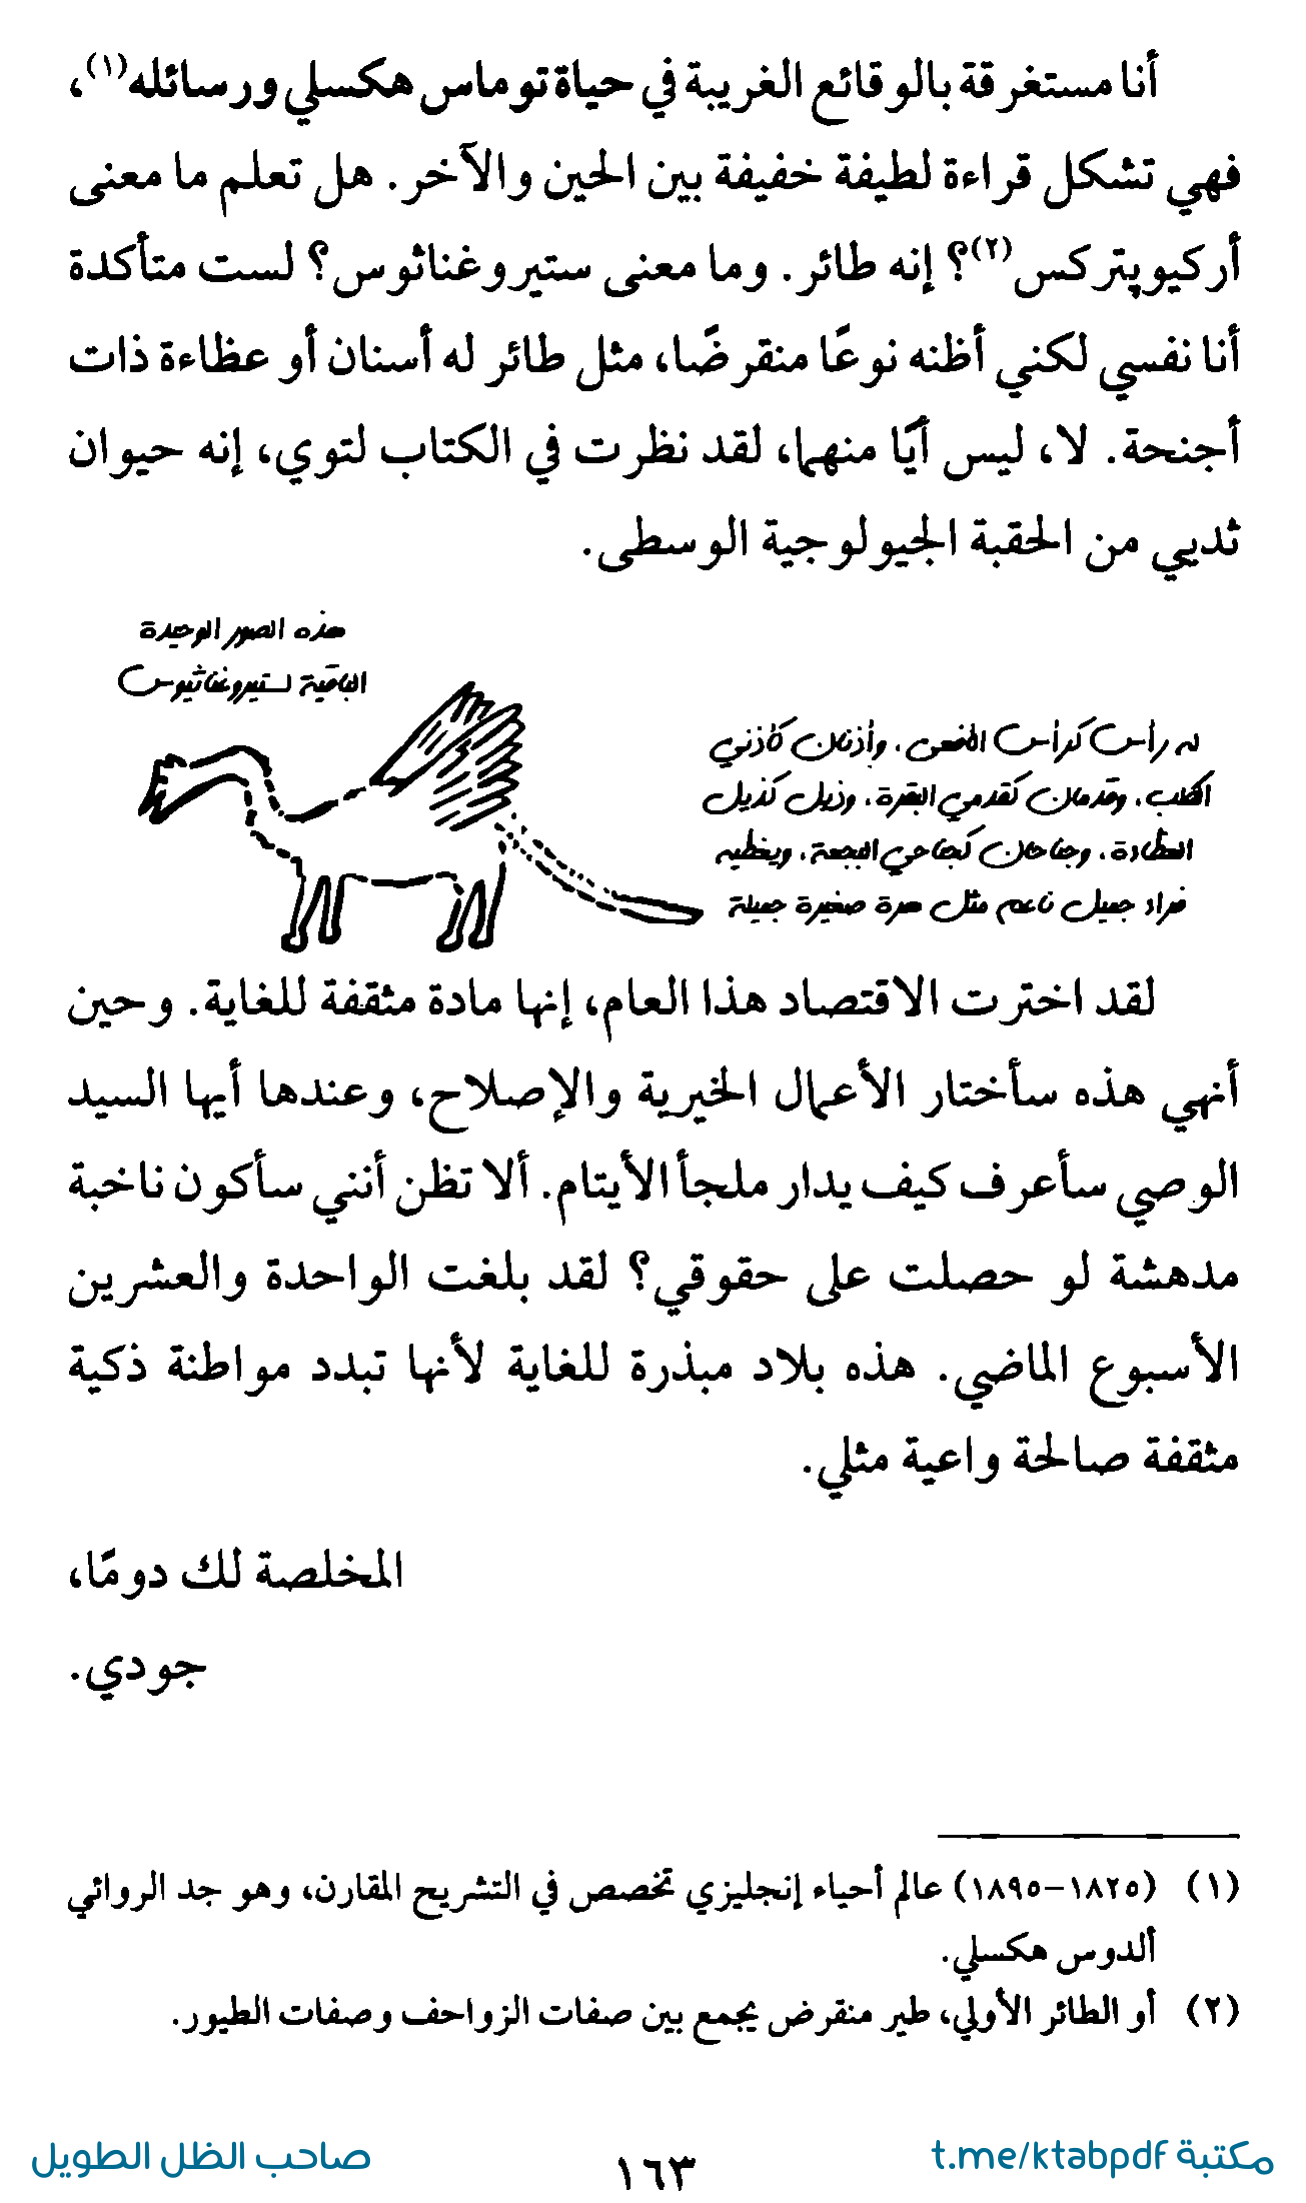 أنا مستغرقة بالوقائع الغريبة في حياة توماس هكسلي ورسائله(١)،
فهي تشكل قراءة لطيفة خفيفة بين الحين والآخر. هل تعلم ما معنى
أركيوپتركس(٢)؟ إنه طائر. وما معنى ستيروغناثوس؟ لست متأكدة
أنا نفسي لكني أظنه نوعًا منقرضًا، مثل طائر له أسنان أو عظاءة ذات
أجنحة. لا، ليس أيًا منهما، لقد نظرت في الكتاب لتوي، إنه حيوان
ثديي من الحقبة الجيولوجية الوسطى.
هذه الصور الوحيدة
الباقية لستيروغناثيوس
له رأس كرأس الأفعى. وأذنان كأذني
الكلب. وقدمان كقدمي البقرة. وذيل كذيل
العظاءة. وجناحان كجناحي البجعة. ويغطيه
فراء جميل ناعم مثل هرة صغيرة جميلة
لقد اخترت الاقتصاد هذا العام، إنها مادة مثقفة للغاية. وحين
أنهي هذه سأختار الأعمال الخيرية والإصلاح، وعندها أيها السيد
الوصي سأعرف كيف يدار ملجأ الأيتام. ألا تظن أنني سأكون ناخبة
مدهشة لو حصلت على حقوقي؟ لقد بلغت الواحدة والعشرين
الأسبوع الماضي. هذه بلاد مبذرة للغاية لأنها تبدد مواطنة ذكية
مثقفة صالحة واعية مثلي.
المخلصة لك دومًا،
جودي.
(١) (١٨٢٥-١٨٩٥) عالم أحياء إنجليزي تخصص في التشريح المقارن، وهو جد الروائي
ألدوس هكسلي.
(٢) أو الطائر الأولي، طير منقرض يجمع بين صفات الزواحف وصفات الطيور.
مكتبة t.me/ktabpdf
١٦٣
صاحب الظل الطويل